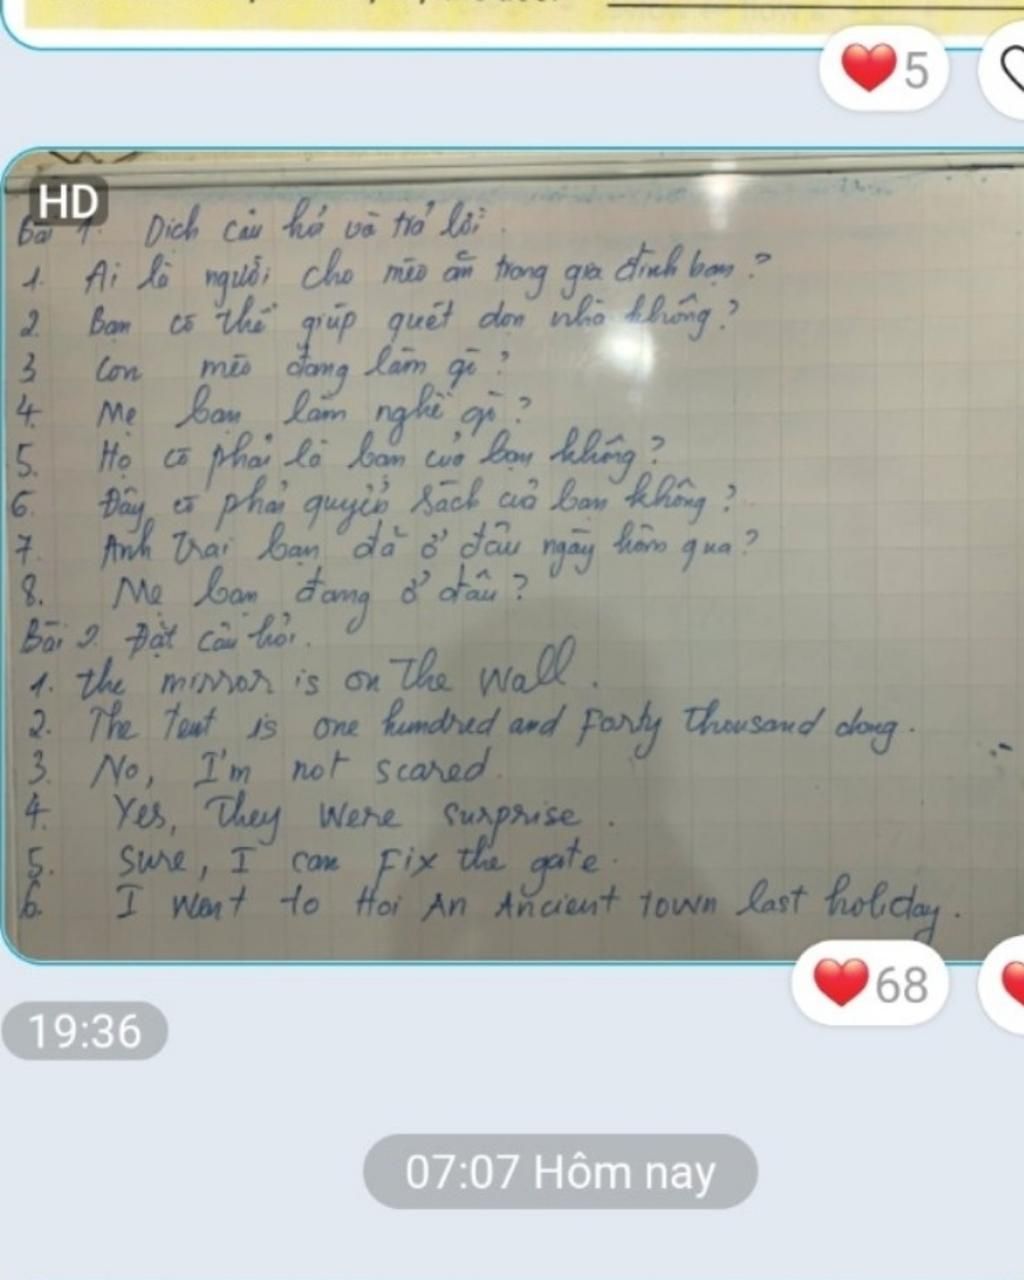 5
HD
Bài 1. Dịch câu hỏi và trả lời.
1. Ai là người cho mèo ăn trong gia đình bạn?
2. Bạn có thể giúp quét dọn nhà không?
3 Con mèo đang làm gì?
4. Mẹ bạn làm nghề gì?
5. Họ có phải là bạn của bạn không?
6. Đây có phải quyển sách của bạn không?
7. Anh trai bạn đã ở đâu ngày hôm qua?
8. Mẹ bạn đang ở đâu?
Bài 2. Đặt câu hỏi.
1. the mirror is on The wall.
2. The tent is one hundred and Forty thousand dong.
3. No, I'm not scared.
4. Yes, They were surprise.
5. Sure, I can Fix the gate.
6. I went to Hoi An Ancient town last holiday.
68
19:36
07:07 Hôm nay